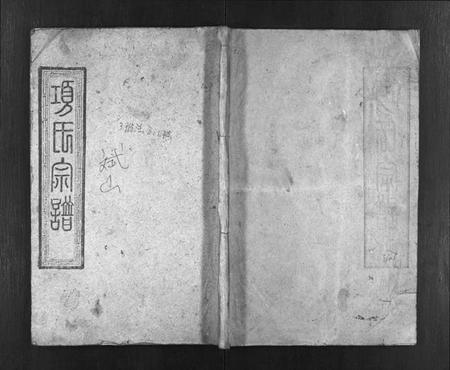 項氏宗譜
斌山